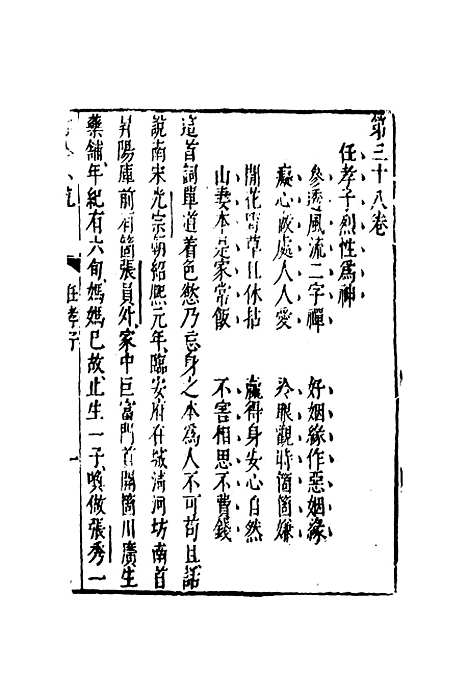 第三十八卷
任孝子烈性爲神
參透風流二字禪 好姻緣作惡姻緣
癡心做處人人愛 冷眼觀時箇箇嫌
閒花野草且休拈 贏得身安心自然
山妻本是家常飯 不害相思不費錢
這首詞單道着色慾乃忘身之本爲人不可苟且話
說南宋光宗朝紹熙元年臨安府在城清河坊南首
昇陽庫前有箇張員外家中巨富門首開箇川廣生
藥舖年紀有六旬媽媽已故止生一子喚做張秀一
任孝子
一